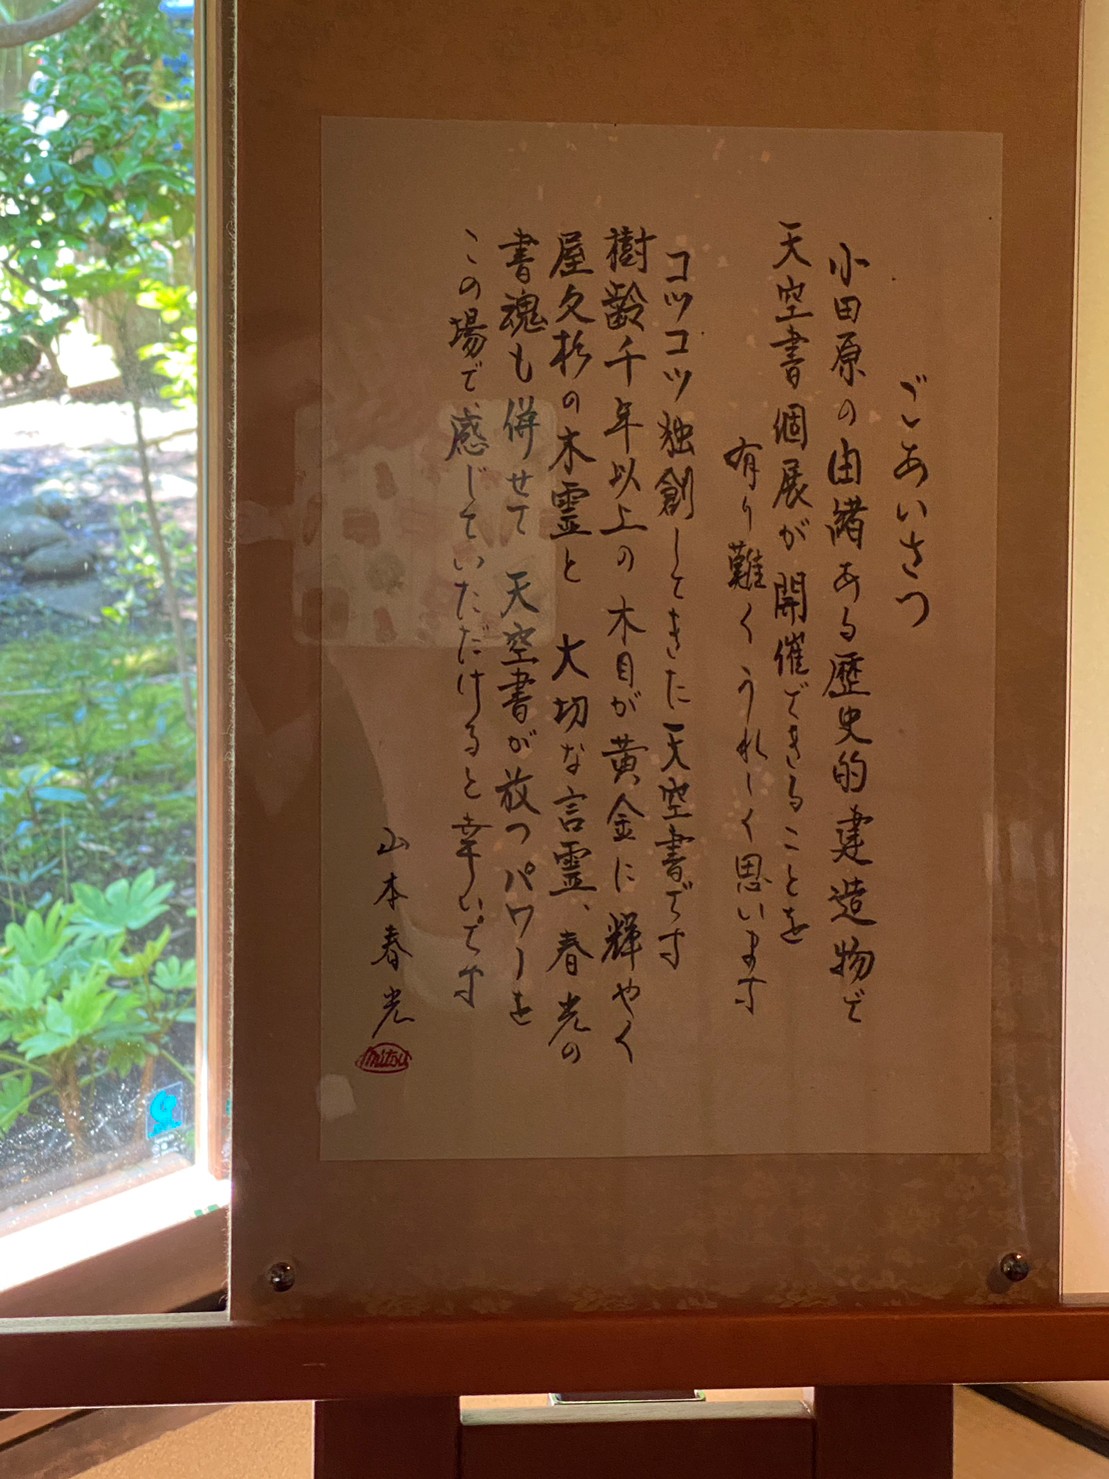 ごあいさつ
小田原の由緒ある歴史的建造物で
天空書個展が開催できることを
有り難くうれしく思います
コツコツ独創してきた天空書です
樹齢千年以上の木目が黄金に輝やく
屋久杉の木霊と 大切な言霊、春光の
書魂も併せて 天空書が放つパワーを
この場で、感じていただけると幸いです
山本春光
mitsu